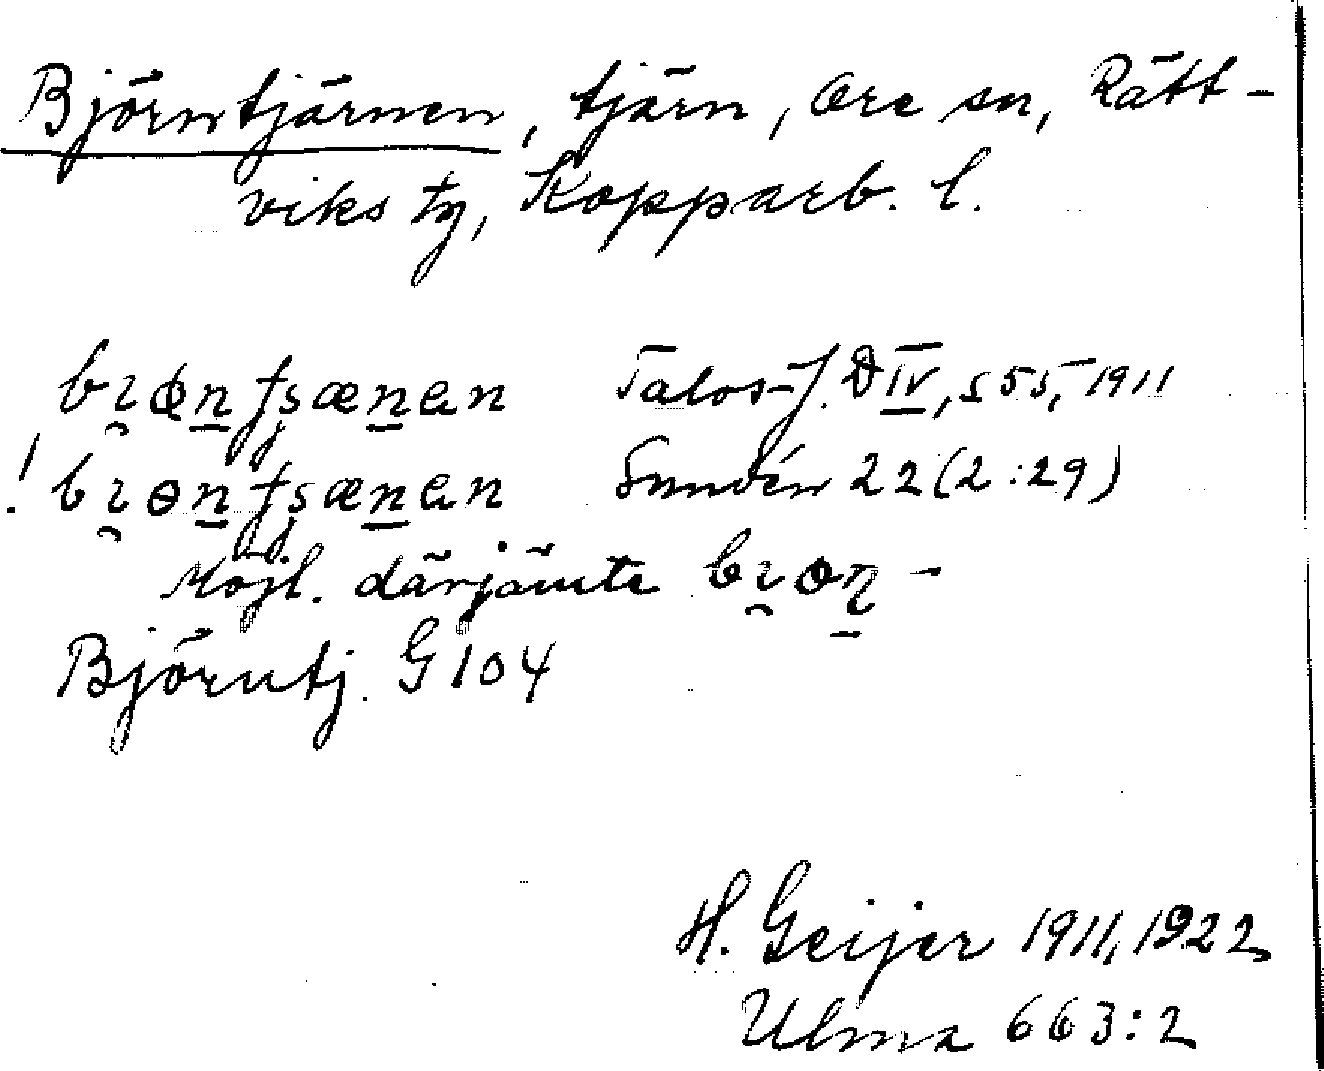 Björntjärnen, tjärn, Ore sn, Rätt-
viks tg, Kopparb. l.
Talos-J. D IV, s 55, 1911
! Sundén 22 (2:29)
Möjl. därjämte
Björntj. G 104
H. Geijer 1911, 1922
Ulma 663:2